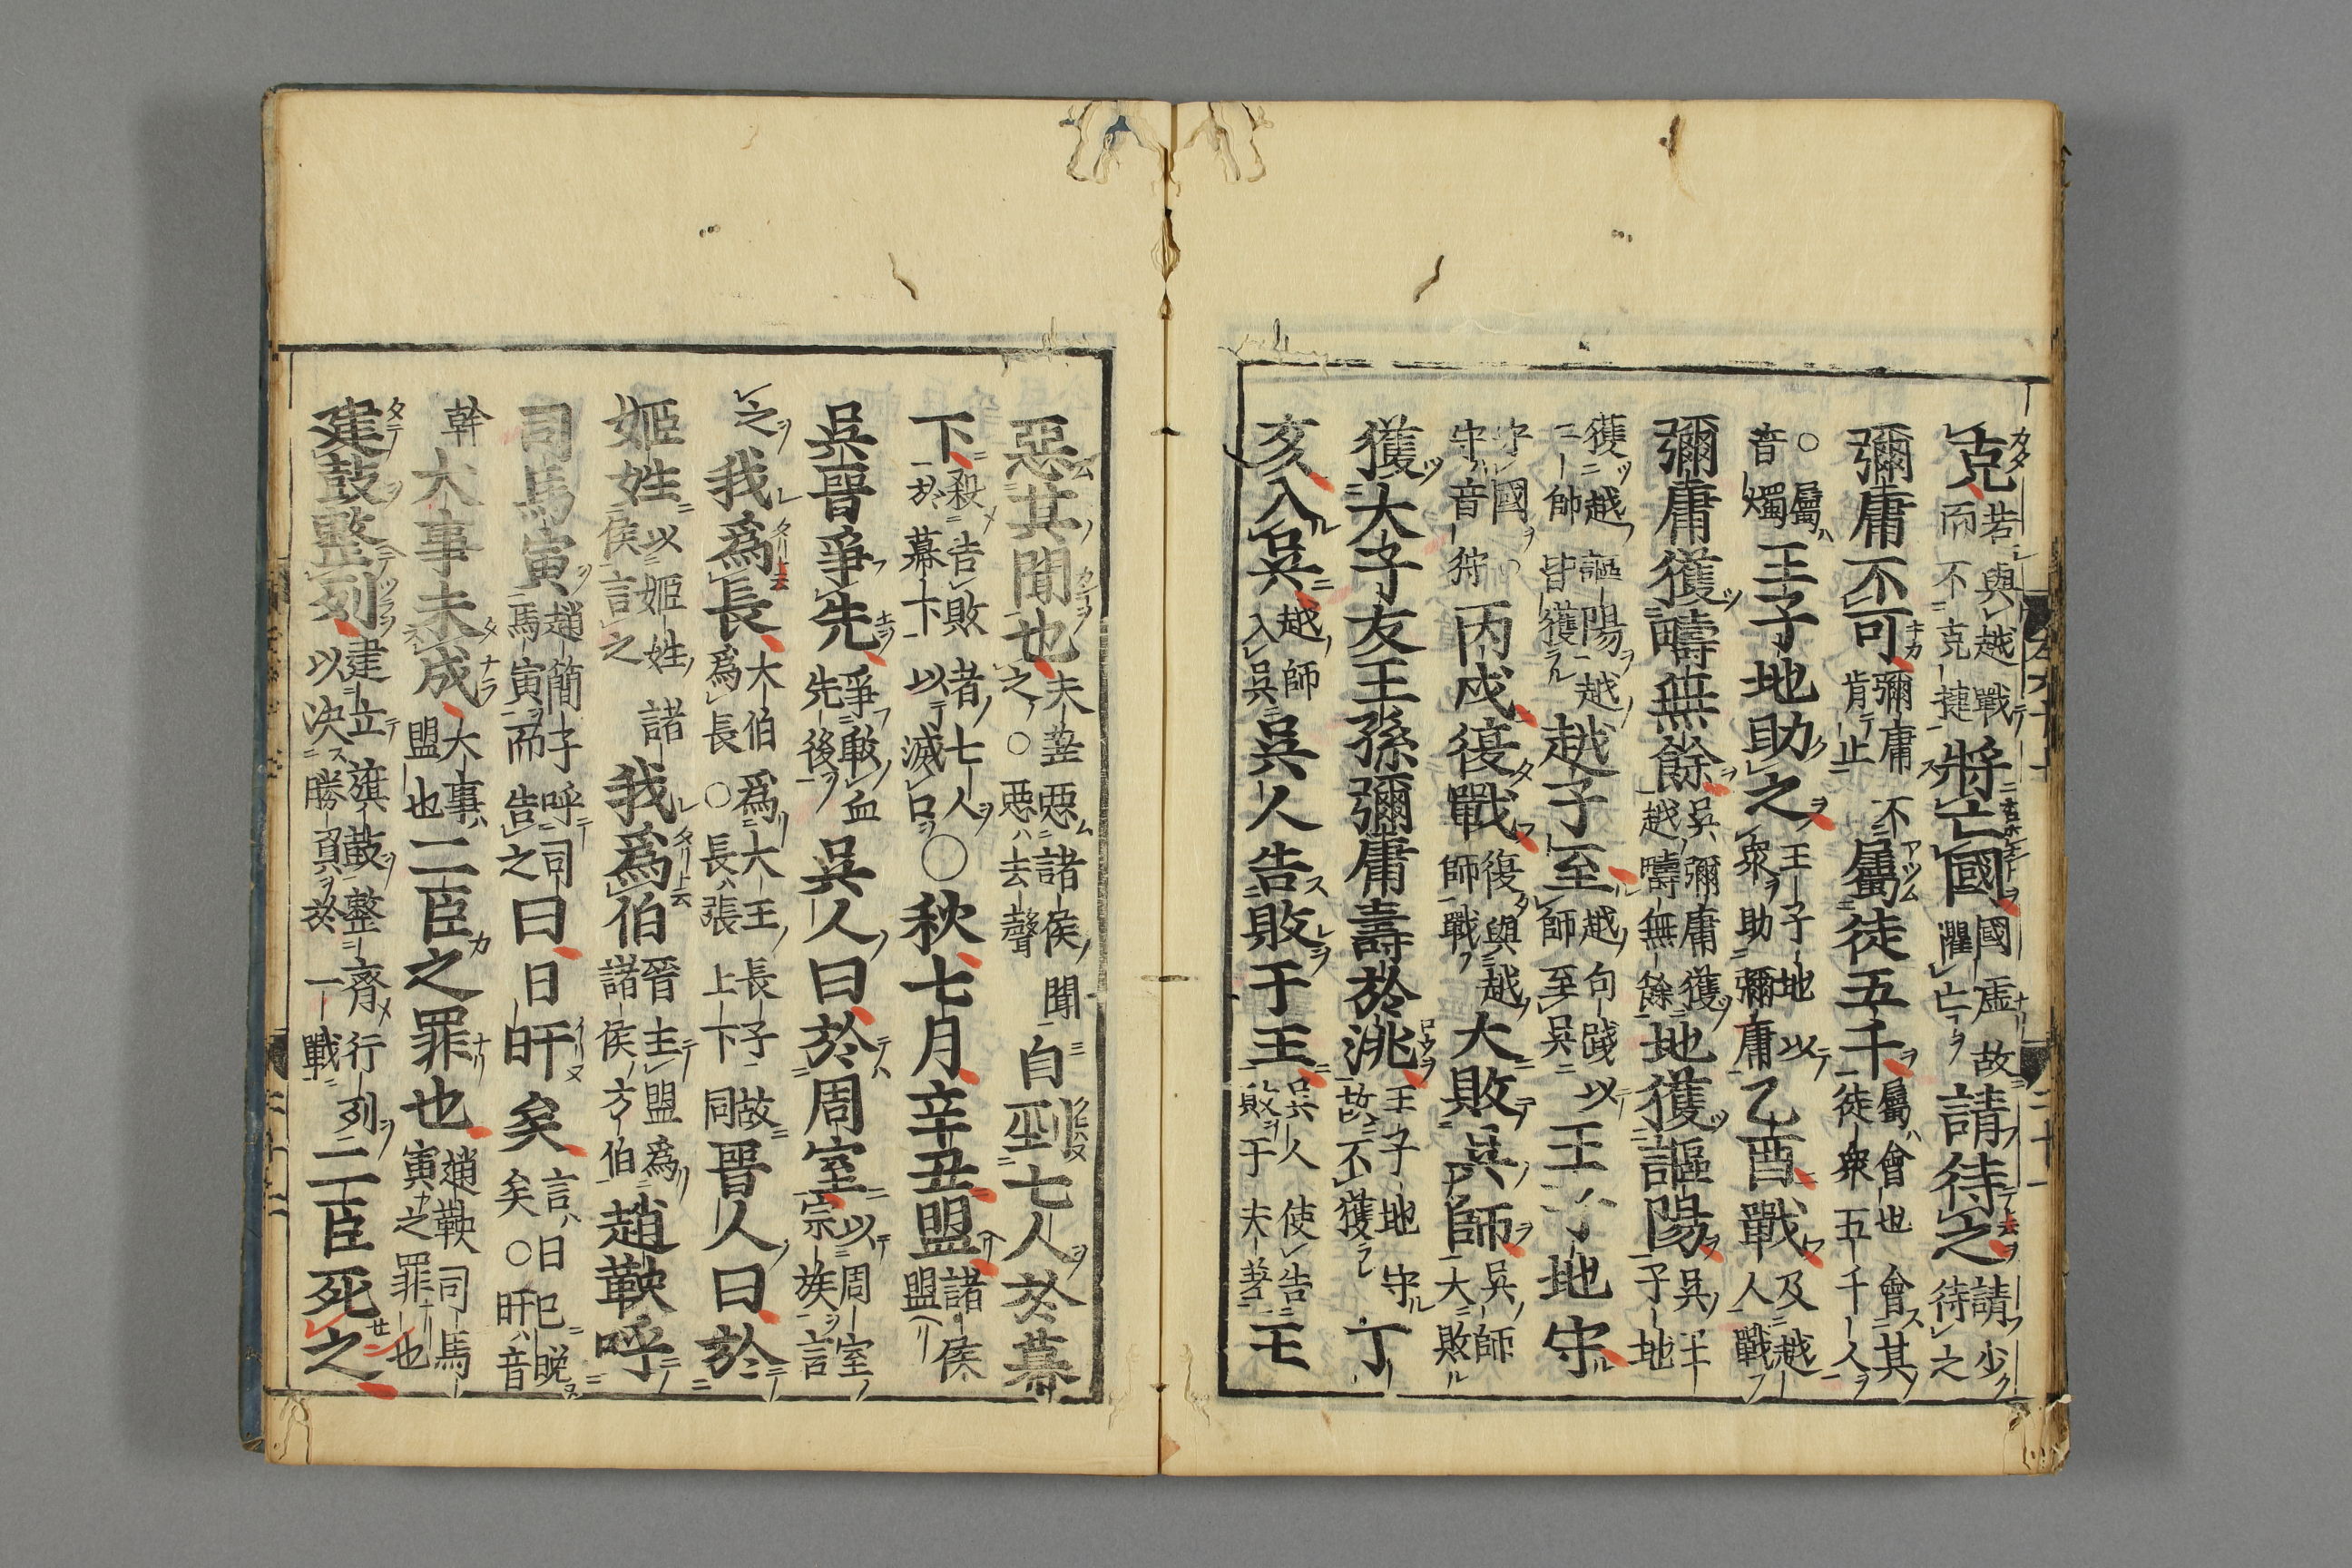 克若與越戰而不克捷將亡國國虛故懼亡請待之請少待之
彌庸不可彌庸不肯止屬徒五千屬會也會其徒衆五千人
○屬音燭王子地助之王子地以衆助彌庸乙酉戰及越人戰
彌庸獲疇無餘吳彌庸獲越疇無餘地獲謳陽吳王子地
獲越謳陽越二帥皆獲越子至越句踐以師至吳王子地守
守國守音狩丙戌復戰復與越師戰大敗吳師吳師大敗
獲大子友王孫彌庸壽於洮王子地守故不獲丁
亥入吳越師入吳吳人告敗于王吳人使告敗于夫差王
惡其聞也夫差惡諸侯聞之○惡去聲自剄七人於幕
下殺告敗者七人於幕下以滅口○秋七月辛丑盟諸侯盟
吳晉爭先爭敢血先後吳人曰於周室以周室宗族言
之我爲長大伯爲大王長子故爲長○長張上下同晉人曰於
姬姓以姬姓諸侯言之我爲伯晉主盟爲諸侯方伯趙鞅呼
司馬寅趙簡子呼司馬寅而告之曰日旰矣言日已晚矣○旰音
幹大事未成大事盟也二臣之罪也趙鞅司馬寅之罪也
建鼓整列建立旗鼓整齊行列以決勝負於一戰二臣死之